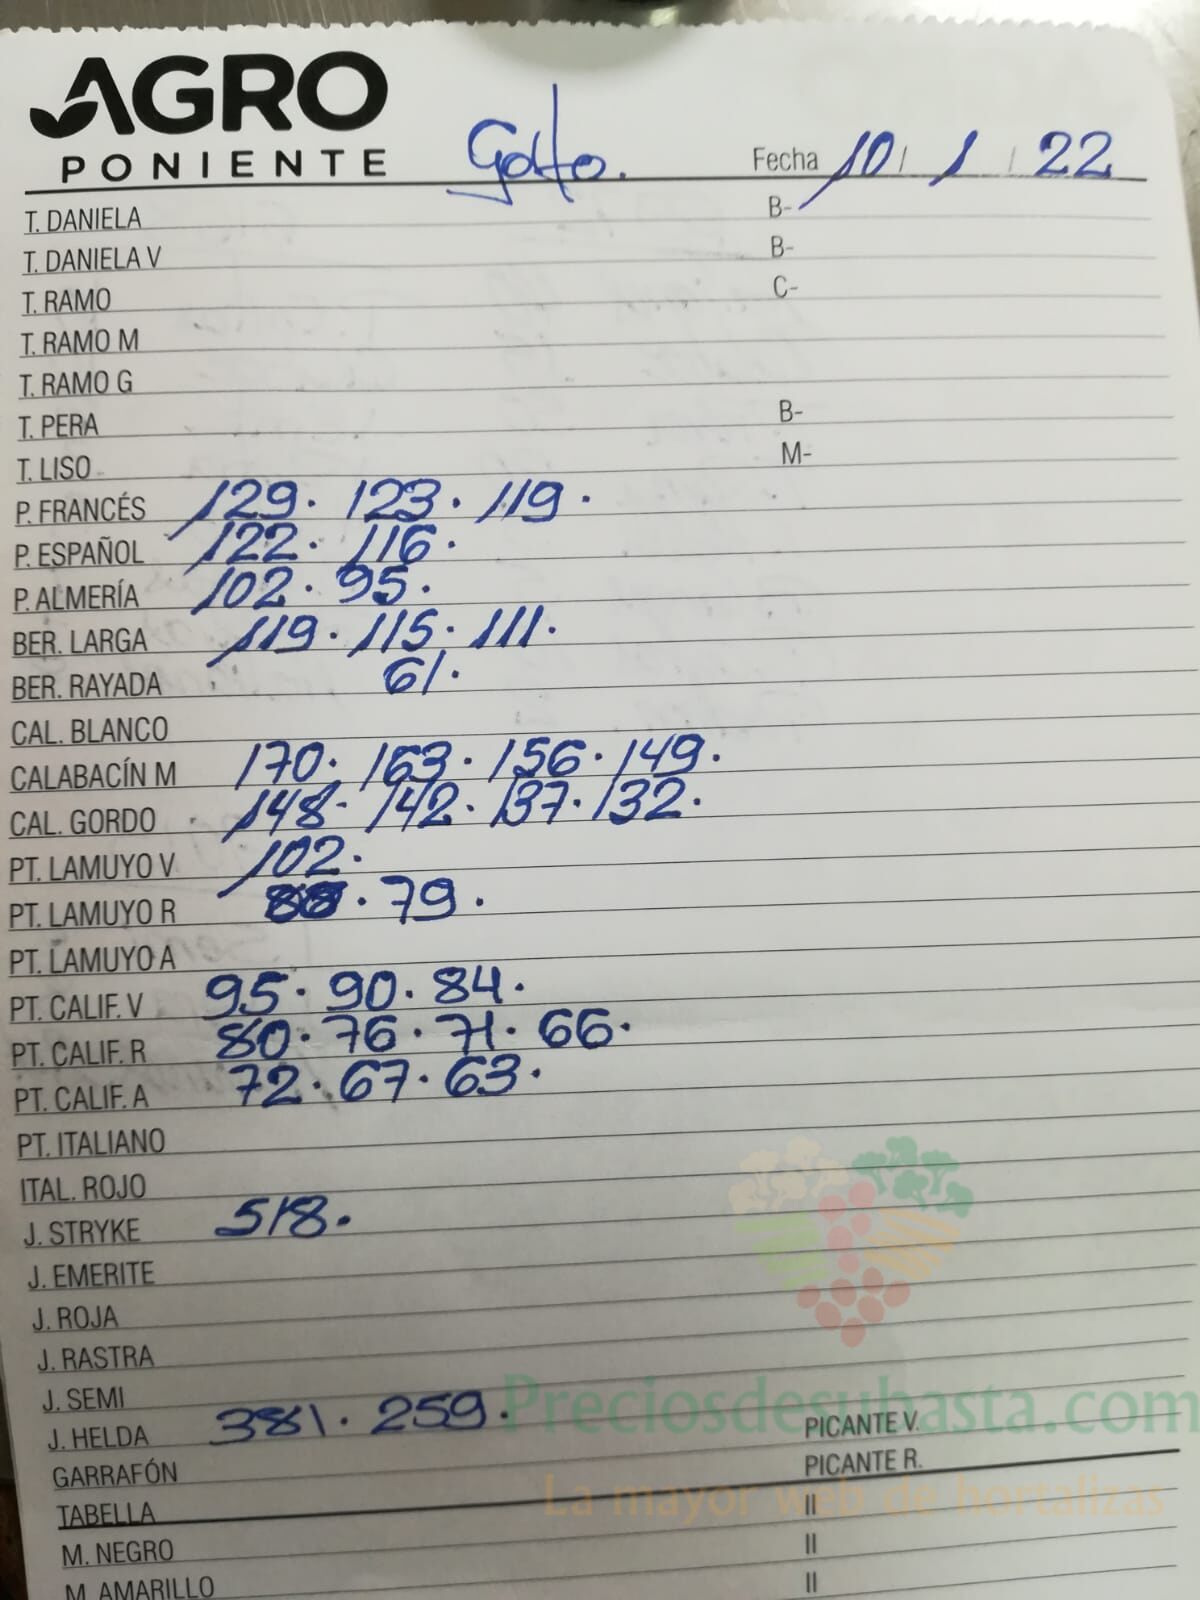 AGRO
PONIENTE
Golfo. Fecha 10/ 1 / 22
T. DANIELA B-
T. DANIELA V B-
T. RAMO C-
T. RAMO M
T. RAMO G
T. PERA B-
T. LISO M-
P. FRANCÉS 129. 123. 119.
P. ESPAÑOL 122. 116.
P. ALMERÍA 102. 95.
BER. LARGA 119. 115. 111.
BER. RAYADA 61.
CAL. BLANCO
CALABACÍN M 170. 163. 156. 149.
CAL. GORDO 148. 142. 137. 132.
PT. LAMUYO V 102.
PT. LAMUYO R . 79.
PT. LAMUYO A
PT. CALIF. V 95. 90. 84.
PT. CALIF. R 80. 76. 71. 66.
PT. CALIF. A 72. 67. 63.
PT. ITALIANO
ITAL. ROJO
J. STRYKE 518.
J. EMERITE
J. ROJA
J. RASTRA
J. SEMI
Preciosdesubasta.com
J. HELDA 381. 259. PICANTE V.
GARRAFÓN PICANTE R.
La mayor web de hortalizas
TABELLA II
M. NEGRO II
M. AMARILLO II